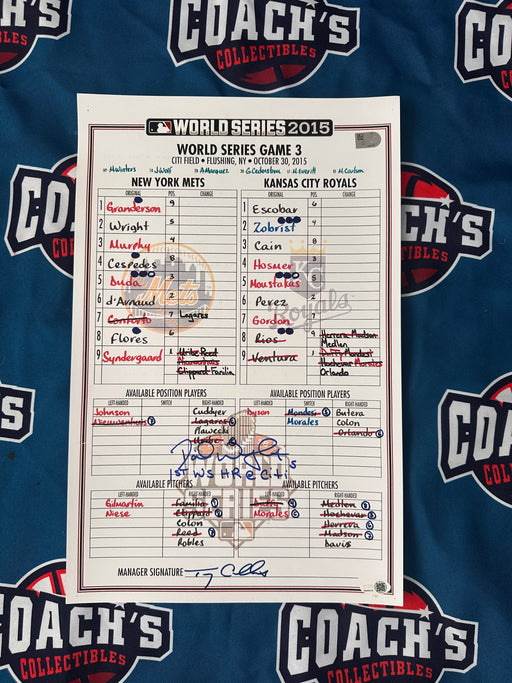 COACH'S
COLLECTIBLES
WORLD SERIES 2015
WORLD SERIES GAME 3
CITI FIELD • FLUSHING, NY • OCTOBER 30, 2015
M. Winters J. Wolf A. Marquez G. Cederstrom M. Everitt M. Carlson
NEW YORK METS
ORIGINAL POS. CHANGE
1 Granderson 9
2 Wright 5
3 Murphy 4
4 Cespedes 8
5 Duda 3
6 d'Arnaud 2
7 Conforto 7 Lagares
8 Flores 6
9 Syndergaard 1 Uribe Reed
Clippard Familia
KANSAS CITY ROYALS
ORIGINAL POS. CHANGE
1 Escobar 6
2 Zobrist 4
3 Cain 8
4 Hosmer 3
5 Moustakas 5
6 Perez 2
7 Gordon 7
8 Rios 9 Herrera Madson
Medlen
9 Ventura 1 Duffy Mondesi
Hochevar Morales
Orlando
AVAILABLE POSITION PLAYERS
LEFT-HANDED SWITCH RIGHT-HANDED
Johnson Cuddyer
Nieuwenhuis Lagares
Plawecki
Uribe
AVAILABLE POSITION PLAYERS
LEFT-HANDED SWITCH RIGHT-HANDED
Dyson Mondesi Butera
Morales Colon
Orlando
1st WS HR @ Citi
AVAILABLE PITCHERS
LEFT-HANDED RIGHT-HANDED
Gilmartin Familia
Niese Clippard
Colon
Reed
Robles
AVAILABLE PITCHERS
LEFT-HANDED RIGHT-HANDED
Duffy Medlen
Morales Hochevar
Herrera
Madson
Davis
MANAGER SIGNATURE